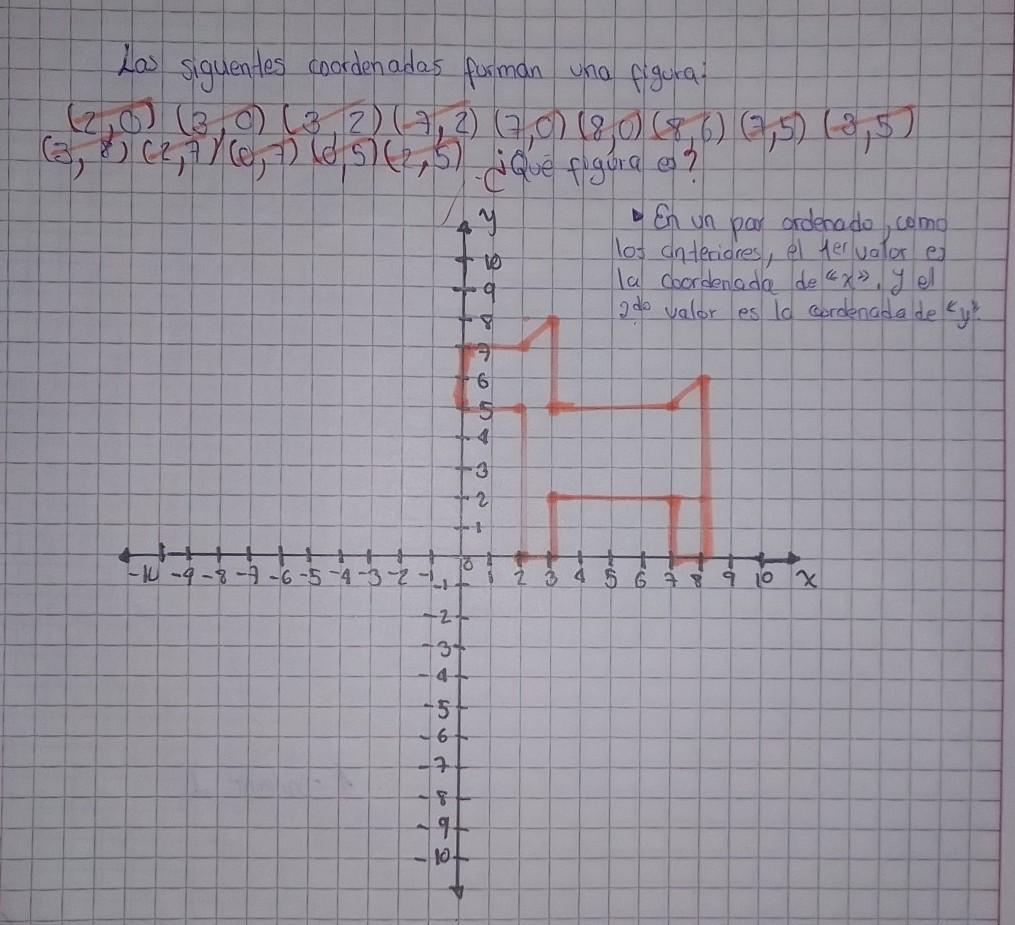 Las siguentes coordenadas forman una figura:
(2,0) (3,0) (3,2) (7,2) (7,0) (8,0) (8,6) (7,5) (3,5)
(3,8) (2,7) (0,7) (0,5) (2,5) ¿Qué figura es?
y
▸ En un par ordenado, como
los anteriores, el 1er valor es
la coordenada de "x", y el
2do valor es la cordenada de "y"
10
9
8
7
6
5
4
3
2
1
-10 -9 -8 -7 -6 -5 -4 -3 -2 -1 0 1 2 3 4 5 6 7 8 9 10 x
-1
-2
-3
-4
-5
-6
-7
-8
-9
-10